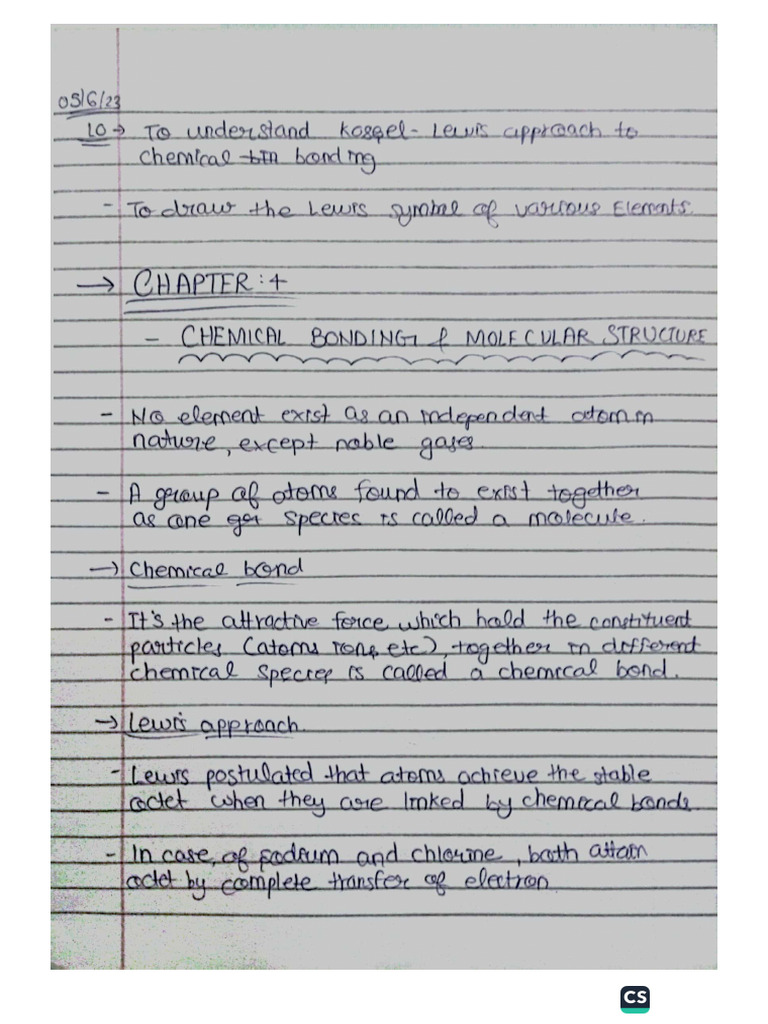 05/6/23
LO → To understand kossel-Lewis approach to
chemical bin bonding
- To draw the Lewis symbol of various Elements.
→ CHAPTER: 4
- CHEMICAL BONDING & MOLECULAR STRUCTURE
- No element exist as an independent atom in
nature, except noble gases.
- A group of atoms found to exist together
as one get species is called a molecule.
→ Chemical bond
- It's the attractive force which hold the constituent
particles (atoms ions, etc), together in different
chemical species is called a chemical bond.
→ Lewis approach.
- Lewis postulated that atoms achieve the stable
octet when they are linked by chemical bonds.
- In case, of sodium and chlorine, both attain
octet by complete transfer of electron.
CS